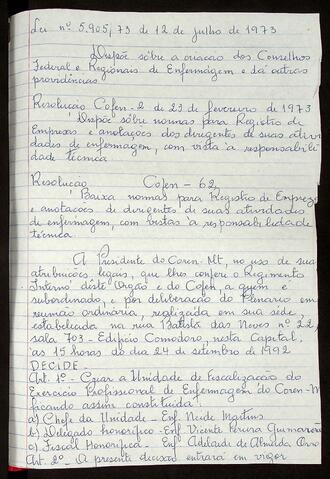 Lei nº 5.905/73 de 12 de julho de 1973
Dispõe sôbre a criação dos Conselhos
Federal e Regionais de Enfermagem e dá outras
providências
Resolução Cofen - 2 de 23 de fevereiro de 1973
Dispõe sôbre normas para Registro de
Empresas e anotações dos dirigentes de suas ativi
dades de enfermagem, com vista à responsabili
dade técnica
Resolução Cofen - 62
Baixa normas para Registro de Empreza
e anotações de dirigentes de suas atividades
de enfermagem, com vistas à responsabilidade
técnica.
A Presidente do Coren-Mt, no uso de suas
atribuições legais, que lhes confere o Regimento
Interno dêste Órgão e do Cofen, a quem é
subordinado, e por deliberação do Plenario em
reunião ordinária, realizada em sua séde,
estabelecida na rua Batista das Neves nº 22,
sala 703 - Edifício Comodoro, nesta Capital,
às 15 horas do dia 24 de setembro de 1992
DECIDE
Art. 1º - Criar a Unidade de Fiscalização do
Exercício Profissional de Enfermagem do Coren-M
ficando assim constituida:
a) Chefe da Unidade - Enf. Neide Martins
b) Delegado honorifico - Enf. Vicente Pereira Guimarães
c) Fiscal Honorifica - Enf. Adelaide de Almeida
Art. 2º - A presente decisão entrará em vigor